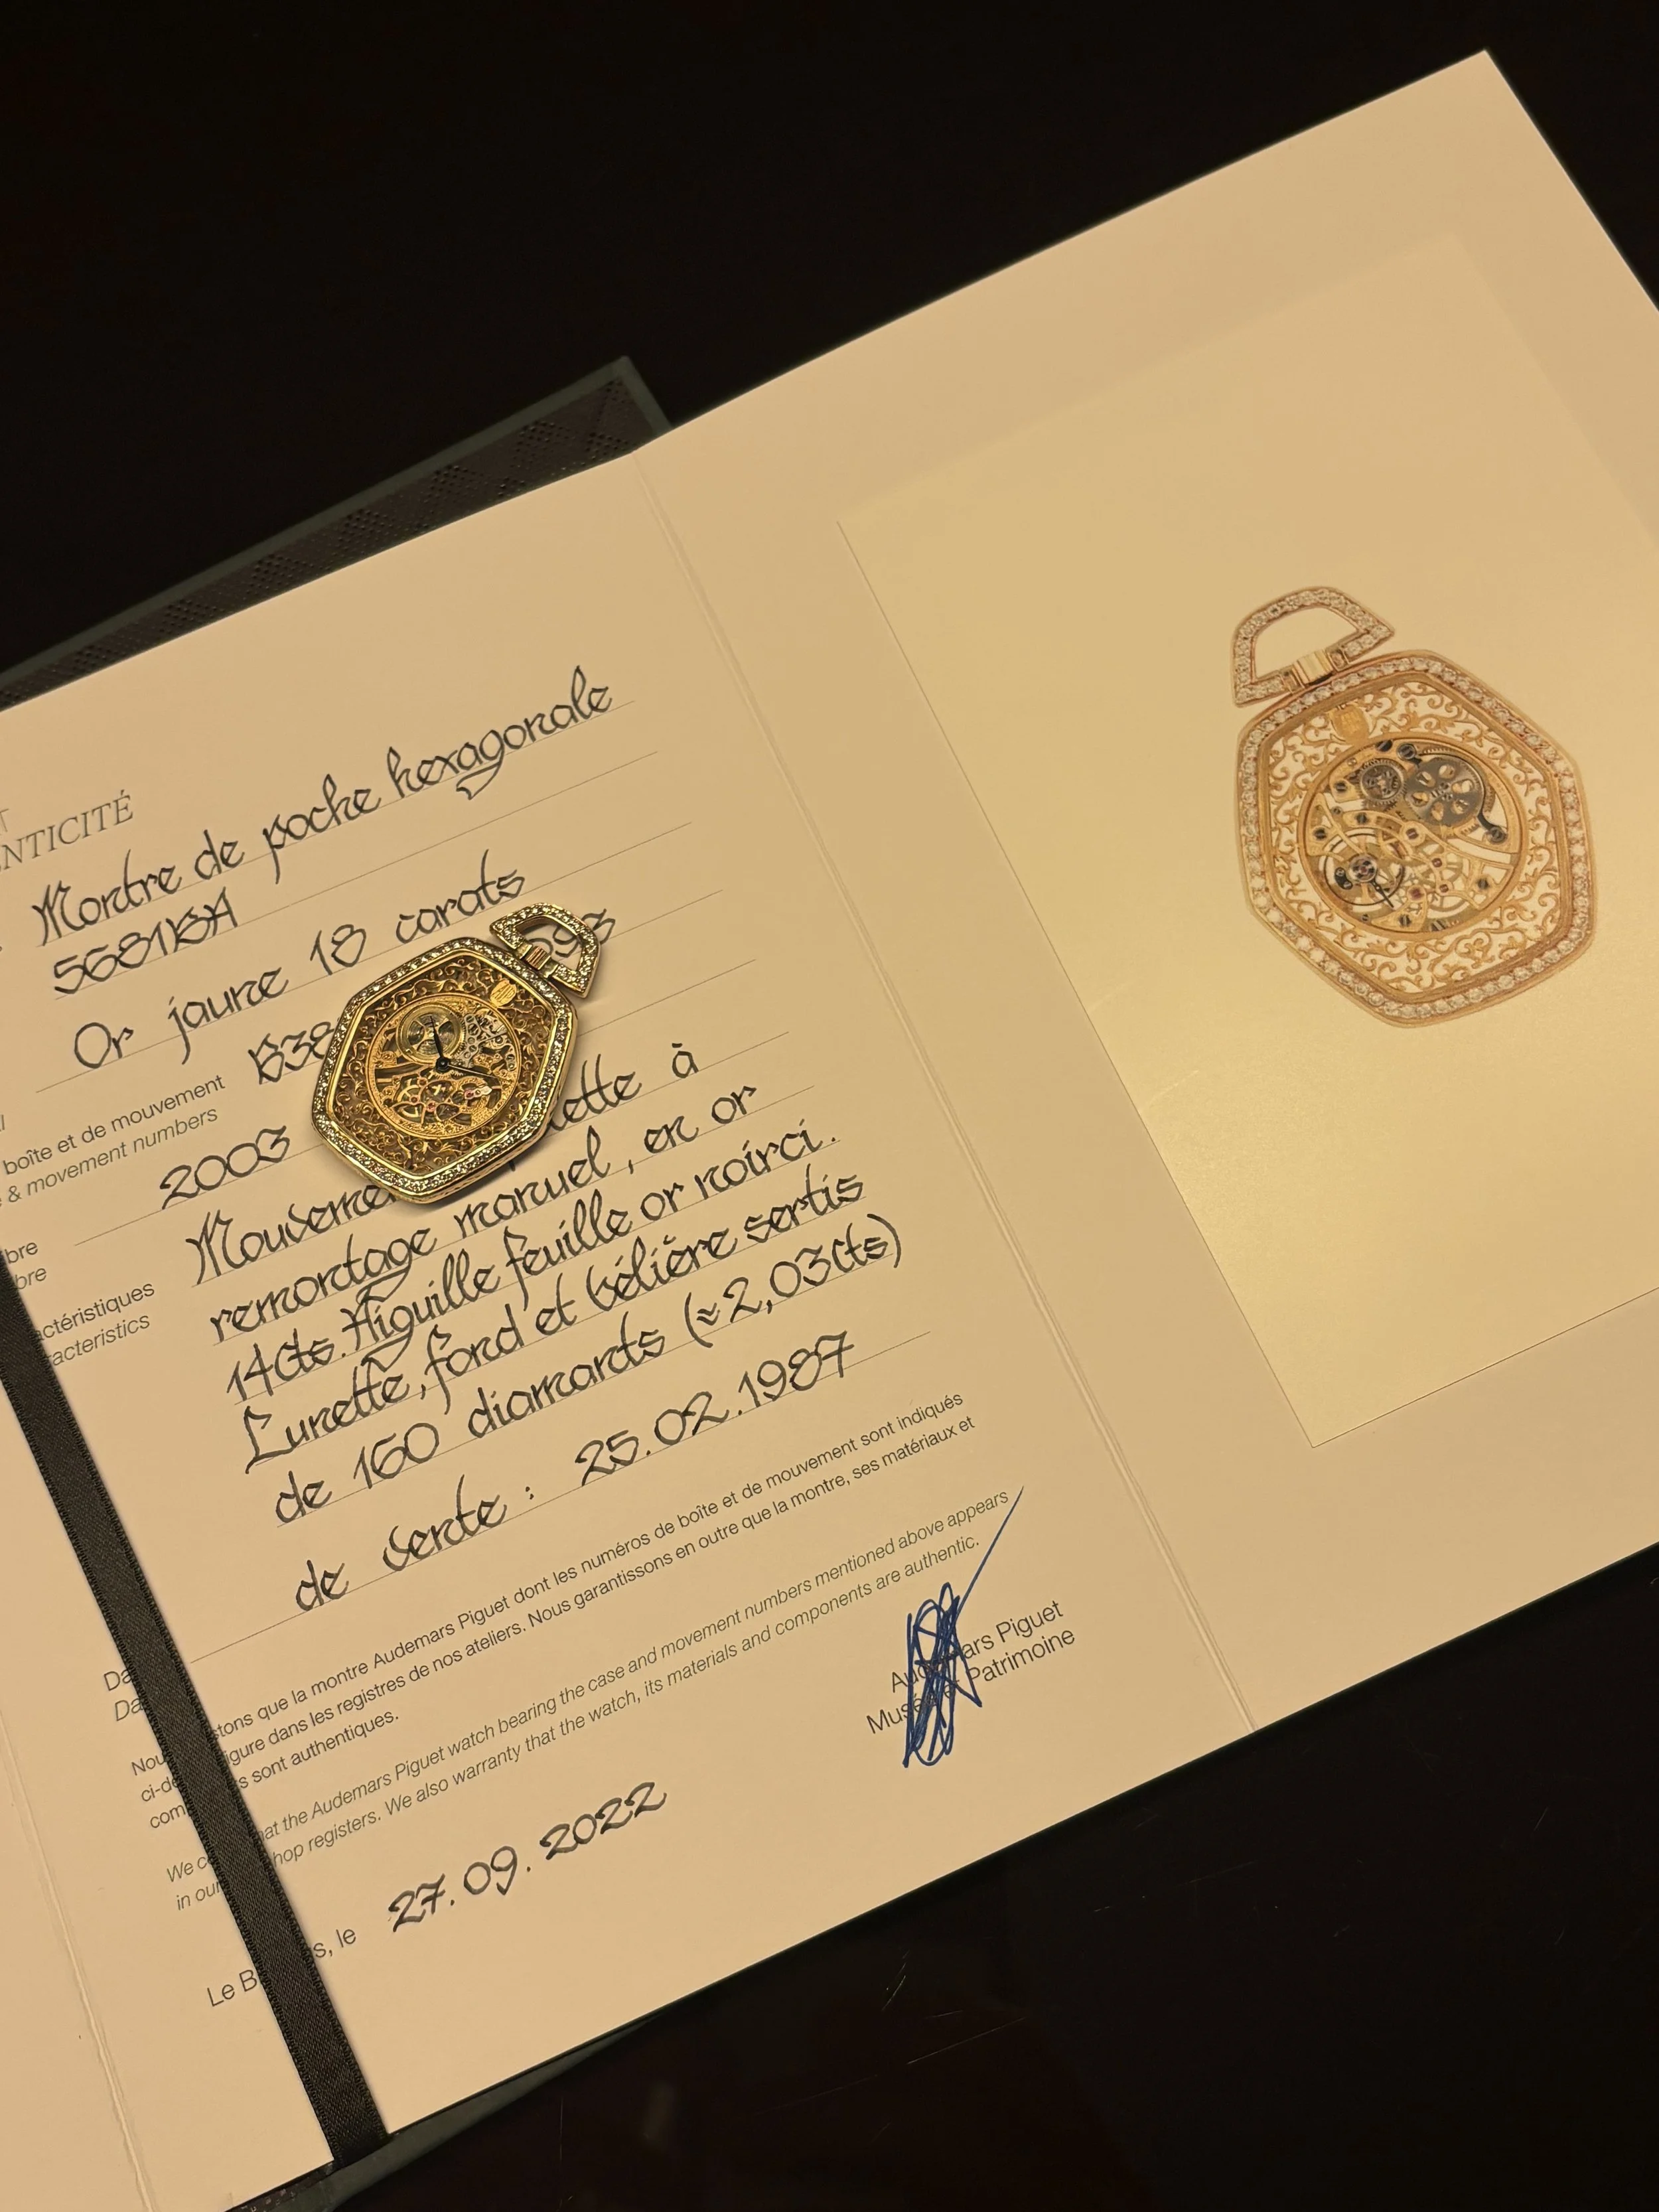 NTICITÉ
Montre de poche hexagonale
5681BA
Or jaune 18 carats
boîte et de mouvement
& movement numbers
B38 593
2003
bre
bre
actéristiques
acteristics
Mouveme ette à
remontage manuel, en or
14Cts. Aiguille feuille or noirci.
Lunette, fond et bélière sertis
de 160 diamants (≈2,03Cts)
Da de vente : 25.02.1987
Da
Nou stons que la montre Audemars Piguet dont les numéros de boîte et de mouvement sont indiqués
ci-de igure dans les registres de nos ateliers. Nous garantissons en outre que la montre, ses matériaux et
com s sont authentiques.
We c at the Audemars Piguet watch bearing the case and movement numbers mentioned above appears
in our hop registers. We also warranty that the watch, its materials and components are authentic.
Audemars Piguet
Musée et Patrimoine
Le B s, le 27.09.2022